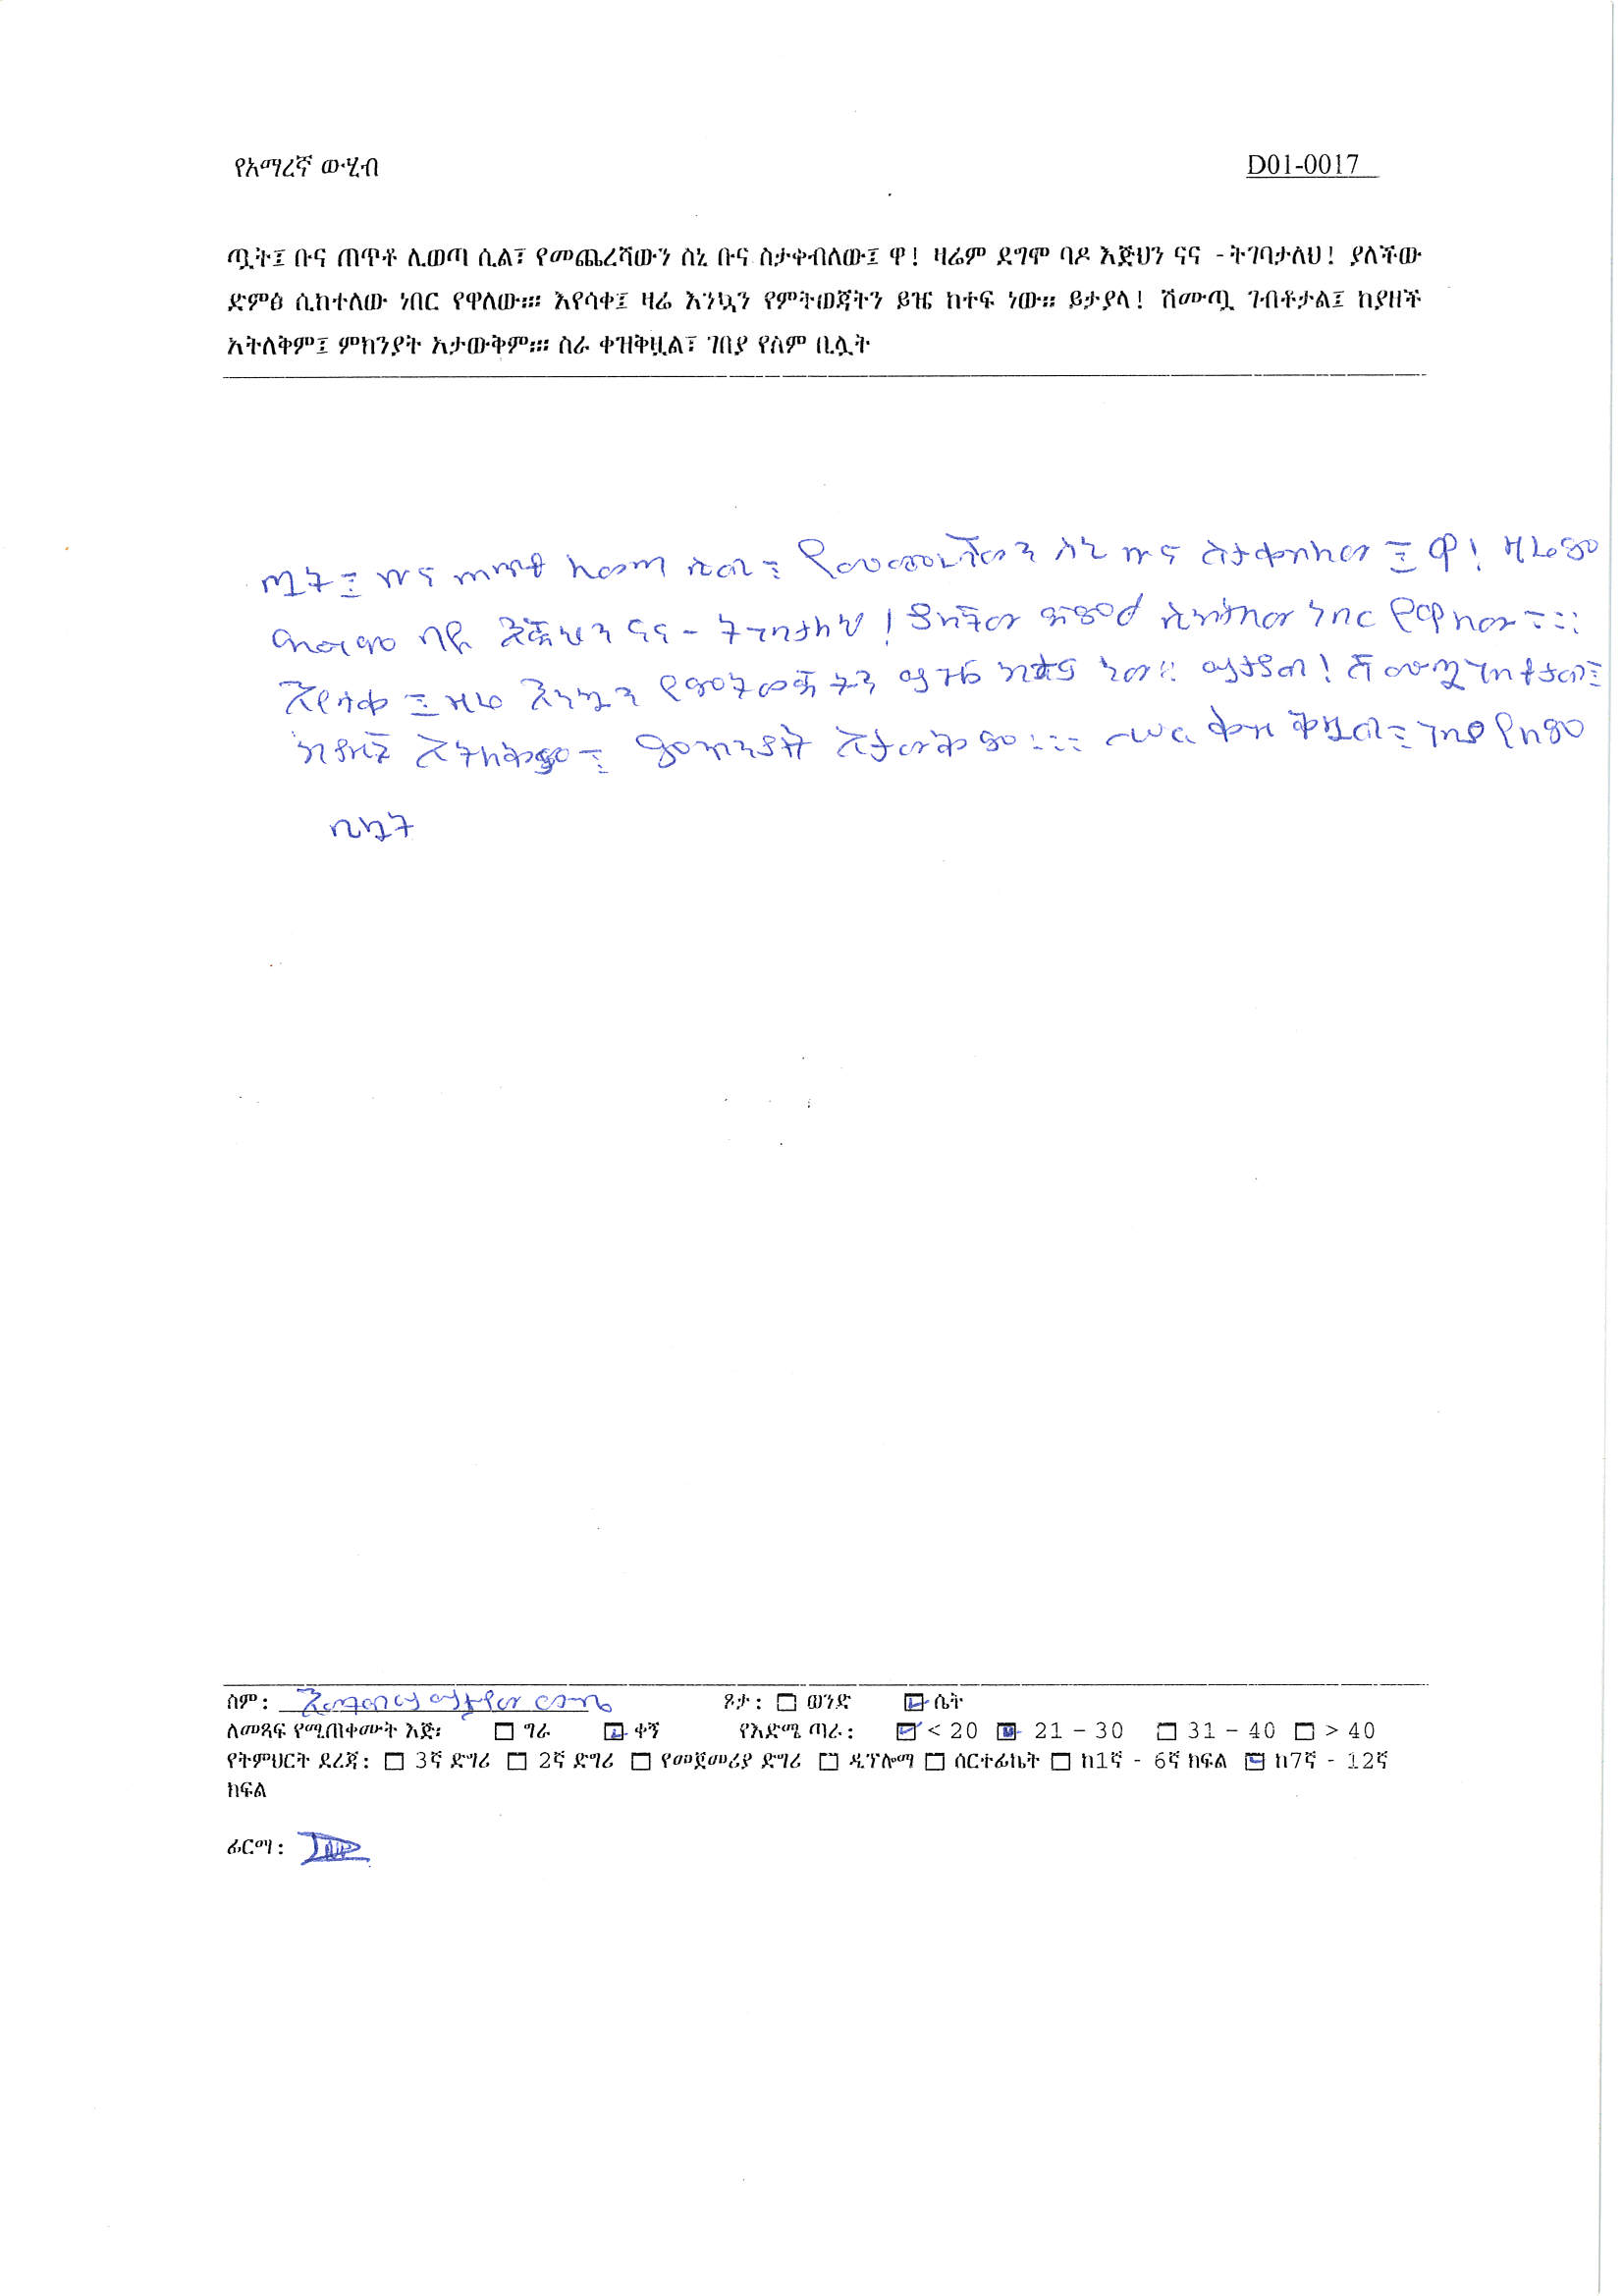 የአማረኛ ውሂብ D01-0017
ጧት፤ ቡና ጠጥቶ ሊወጣ ሲል፣ የመጨረሻውን ስኒ ቡና ስታቀብለው፤ ዋ! ዛሬም ደግሞ ባዶ እጅህን ናና - ትገባታለህ! ያለችው
ድምፅ ሲከተለው ነበር የዋለው። እየሳቀ፤ ዛሬ እንኳን የምትወጃትን ይዤ ከተፍ ነው። ይታያላ! ሽሙጧ ገብቶታል፤ ከያዘች
አትለቅም፤ ምክንያት አታውቅም። ስራ ቀዝቅዟል፣ ገበያ የስም ቢሏት
ጧት፤ ቡና ጠጥቶ ሊወጣ ሲል፣ የመጨረሻውን ስኒ ቡና ስታቀብለው፤ ዋ! ዛሬም
ደግሞ ባዶ እጅህን ናና - ትገባታለህ! ያለችው ድምፅ ሲከተለው ነበር የዋለው።
እየሳቀ፤ ዛሬ እንኳን የምትወጃትን ይዤ ከተፍ ነው። ይታያላ! ሽሙጧ ገብቶታል፤
ከያዘች አትለቅም፤ ምክንያት አታውቅም። ስራ ቀዝቅዟል፣ ገበያ የስም
ቢሏት
ስም: ጾታ: ወንድ ሴት
ለመጻፍ የሚጠቀሙት እጅ: ግራ ቀኝ የእድሜ ጣራ: < 20 21 - 30 31 - 40 > 40
የትምህርት ደረጃ: 3ኛ ድግሪ 2ኛ ድግሪ የመጀመሪያ ድግሪ ዲፕሎማ ሰርተፊኬት ከ1ኛ - 6ኛ ክፍል ከ7ኛ - 12ኛ
ክፍል
ፊርማ: